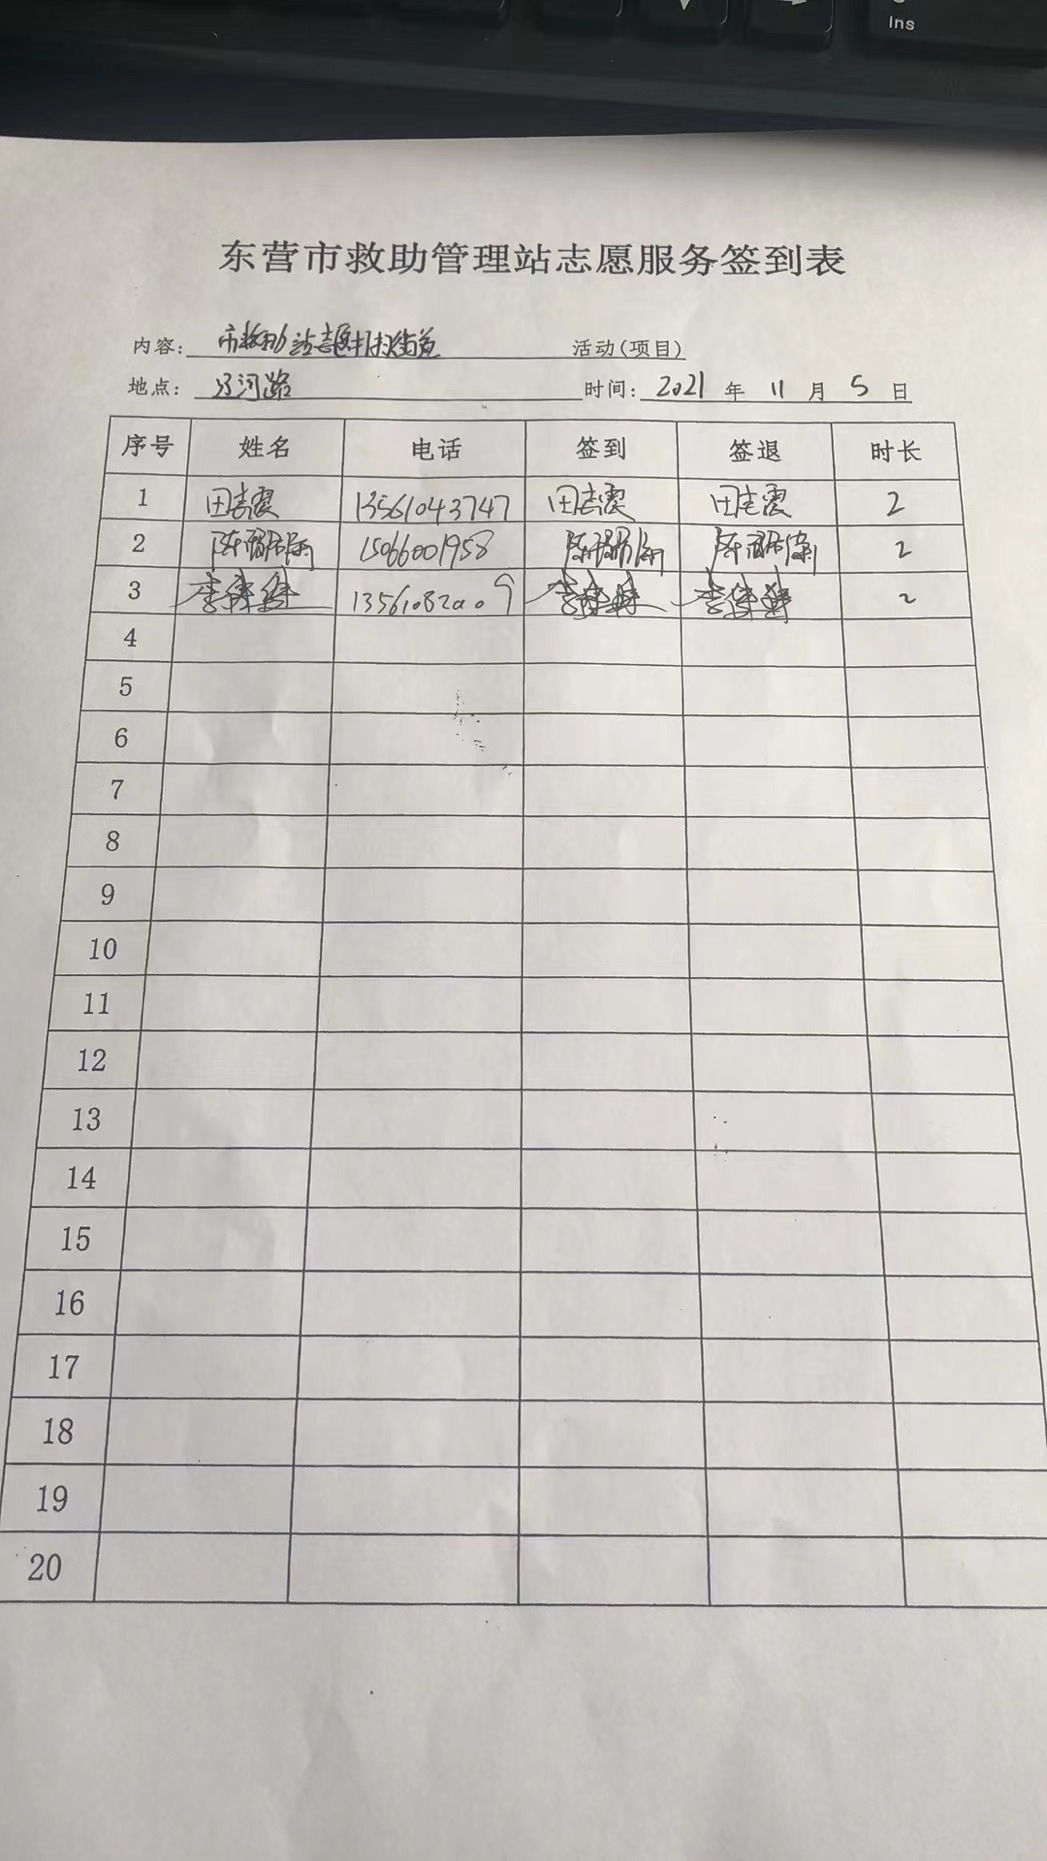 Ins
东营市救助管理站志愿服务签到表
内容: 市救助站志愿 活动(项目)
地点: 辽河路 时间: 2021 年 11 月 5 日
序号 姓名 电话 签到 签退 时长
1 田志霞 13561043747 田志霞 田志霞 2
2 陈 15066001958 陈 陈 2
3 李 李 李 2
4
5
6
7
8
9
10
11
12
13
14
15
16
17
18
19
20